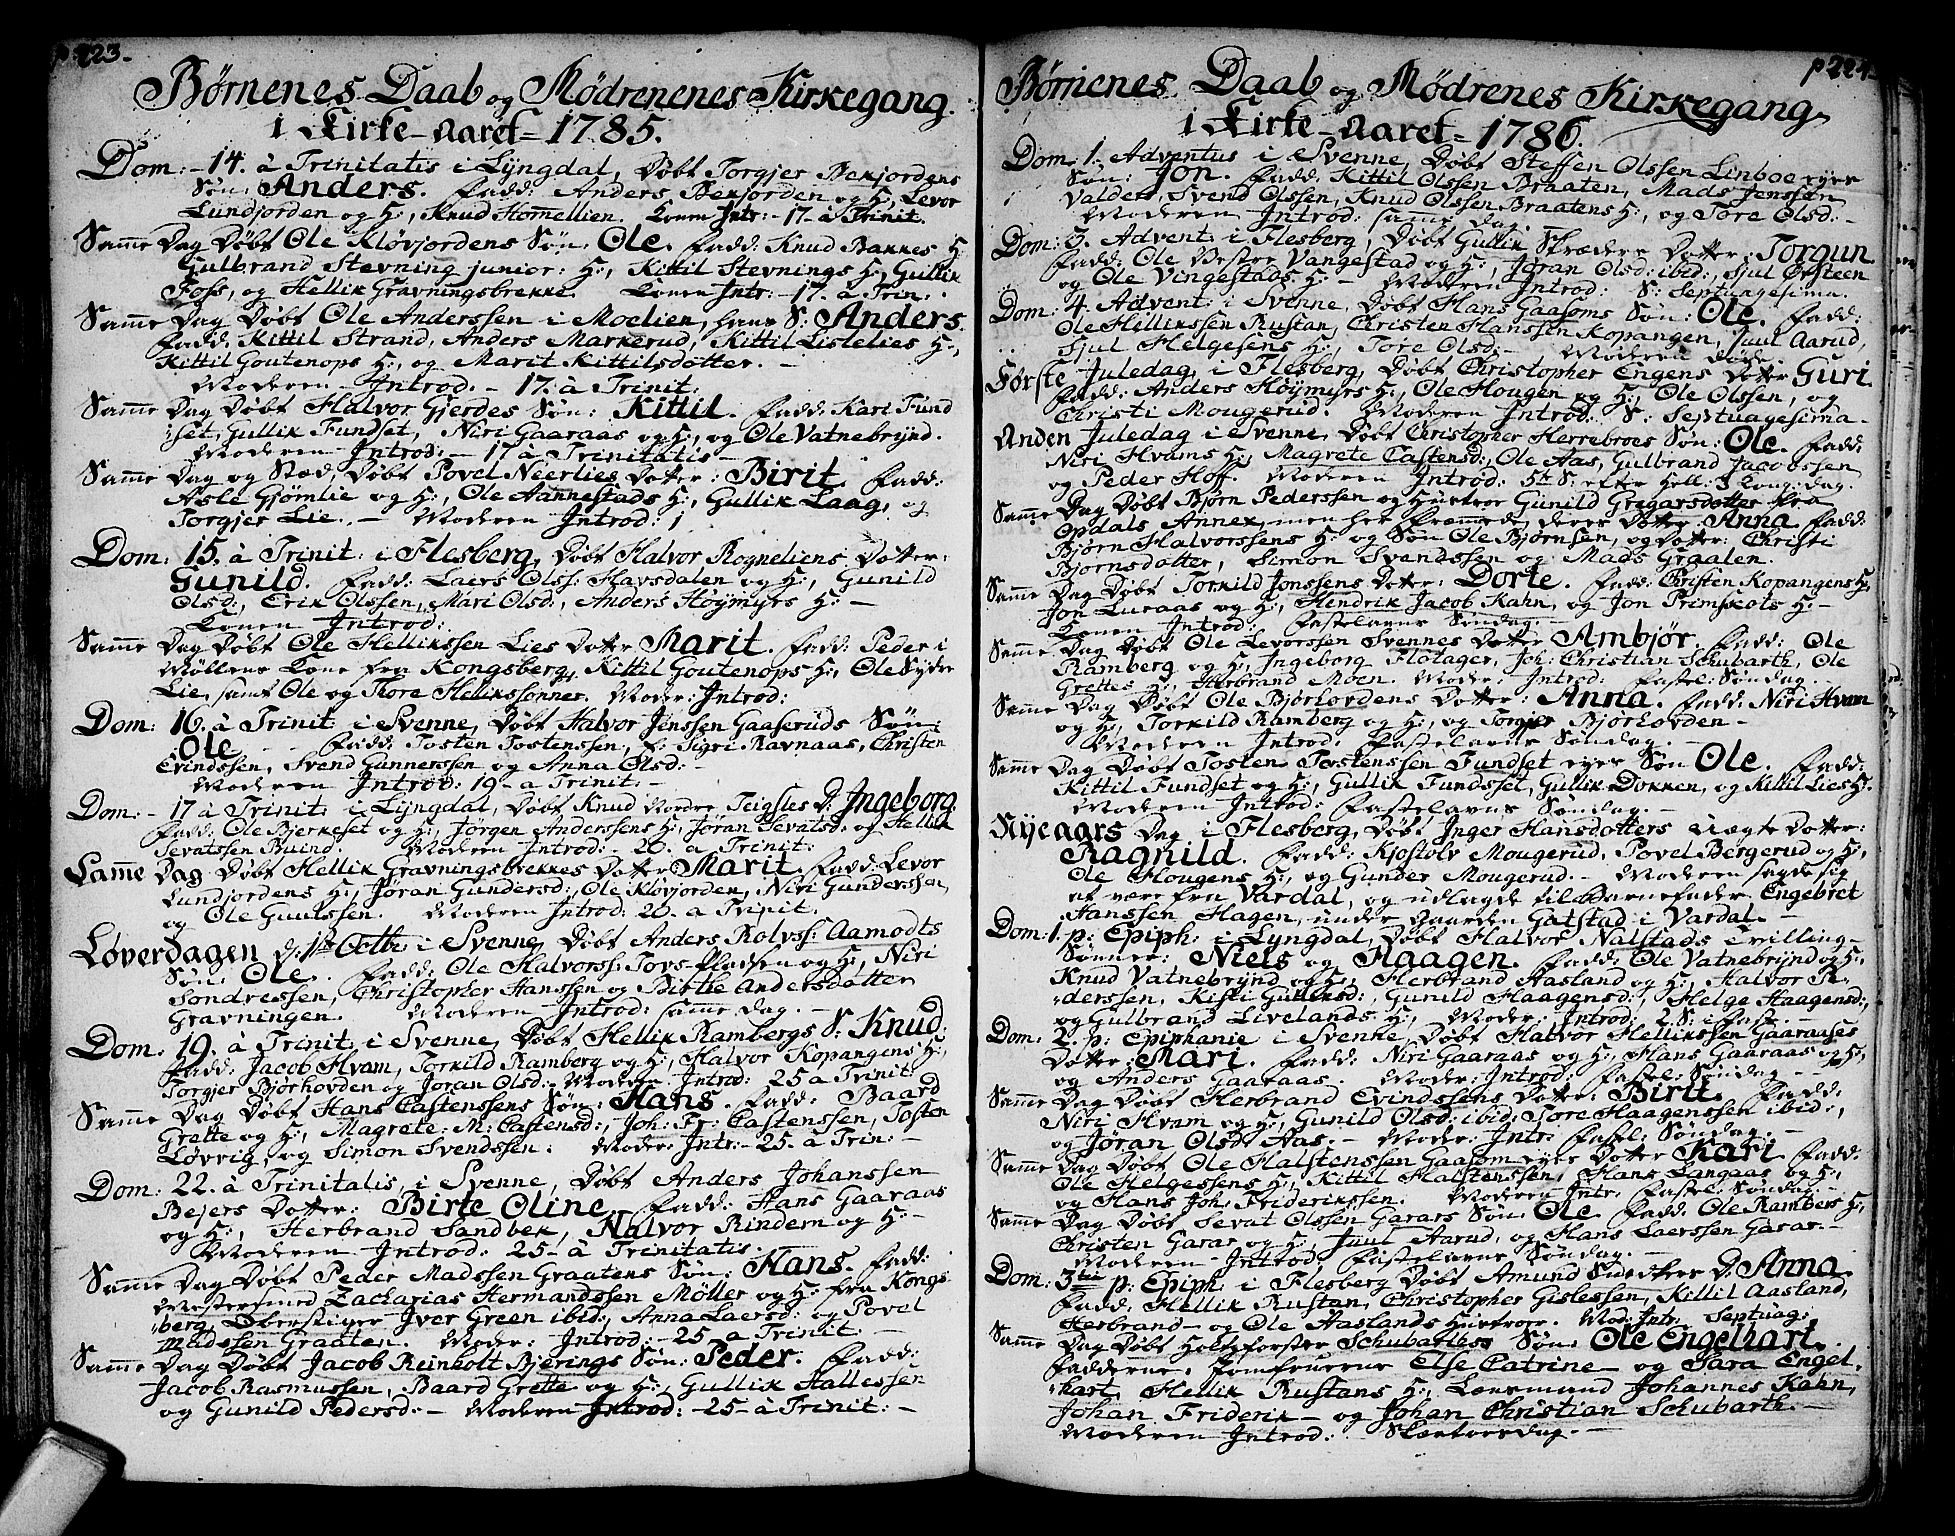 p 223.
Børnenes Daab og Mødrenenes Kirkegang
i Kirke-Aaret 1785.
Dom: 14. à Trinitatis i Lÿngdal, Døbt Torgier Bekjordens
Søn: Anders. Fadd: Anders Bekjorden og H:, Levor
Lundjorden og H:, Knud Hornellien. Konen Intr:- 17. à Trinit.
Samme Dag Døbt Ole Kløvjordens Søn: Ole. Fadd: Knud Bakkes H:
Gulbrand Stevning junior: H:, Kittil Stevnings H:, Gullik
Foss, og Hellik Gravningsbrekke. Konen Intr:- 17. à Trin:.
Samme Dag Døbt Ole Anderssen i Moelien, hans S: Anders.
Fadd: Kittil Strand, Anders Markerud, Kittil Lislelies H:,
Kittil Goutenops H:, og Marit Kittilsdotter. -
Moderen Introd. - 17. à Trinit.
Samme Dag Døbt Halvor Gjerdes Søn: Kittil. Fadd: Kari Fund
:set, Gullik Fundset, Niri Gaaraas og H:, og Ole Vatnebrÿnd.
Moderen Introd:- 17 à Trinitatis -
Samme Dag og Stæd, Døbt Povel Neerlies Dotter: Birit. Fadd:
Asle Gjømlie og H:, Ole Aannestads H:, Gullik Laag, og
Torgier Lie. - Moderen Introd:
Dom: 15. à Trinit: i Flesberg, Døbt Halvor Rogneliens Dotter:
Gunild. Fadd: Laers Olss: Havsdalen og H:, Gunild
Olsd:, Erik Olssen, Mari Olsd:, Anders Høÿmÿrs H: -
Konen Introd:
Samme Dag Døbt Ole Hellikssen Lies Dotter Marit. Fadd: Peder i
Møllens Kone fra Kongsberg, Kittil Goutenops H:, Ole Sÿdre
Lie, samt Ole og Thore Hellikssønner. Moder: Introd:
Dom: 16. à Trinit: i Svenne, Døbt Halvor Jenssen Gaaseruds Søn:
Ole. Fadd: Tosten Tostenssen, f: Sigri Ravnaas, Christen
Evindssen, Svend Gunnerssen og Anna Olsd:-
Moderen Introd: 19- à Trinit.-
Dom:- 17 à Trinit: i Lÿngdal, Døbt Knud Nordre Teigsles D: Ingeborg.
Fadd: Ole Bjerkeset og H:, Jørgen Anderssens H:, Jøran Sevatsd: og Hellik
Sevatssen Buind. Moderen Introd:- 20. à Trinit:
Samme Dag Døbt Hellik Gravningsbrekkes Dotter Marit. Fadd: Levor
Lundjordens H:, Jøran Gundersd:, Ole Kløvjorden, Niri Gunderssen,
og Ole Guulssen. Moderen Introd: 20- à Trinit:
Løverdagen d: 1ste Octbr: i Svenne, Døbt Anders Rolvss: Aamodts
Søn: Ole. Fadd: Ole Halvorss: Tovs-Pladsen og H:, Niri
Sondressen, Christopher Hanssen og Birthe Andersdatter
Gravningen. Moderen Introd: samme dag. -
Dom: 19. à Trinit: i Svenne, Døbt Hellik Rambergs S: Knud:
Fadd: Jacob Hvam, Torkild Ramberg og H:, Halvor Kopangens H:,
Torgier Bjørhovden og Jøran Olsd:- Moderen Introd: 25 à Trinit:
Samme Dag Døbt Hans Castenssens Søn: Hans. Fadd: Baard
Grette og H:, Magrete: M: Castensd:, Joh: Fr: Castenssen, Tosten
Løvrig, og Simon Svendssen. Moder: Intr:- 25. à Trin:-
Dom: 22. à Trinitatis, i Svenne, Døbt Anders Johanssen
Bejers Dotter: Birte Oline. Fadd: Hans Gaaraas
og H:, Herbrand Sandbek, Halvor Rindern og H:-
Moderen Introd: 25- à Trinitatis.
Samme Dag Døbt Peder Madssen Graatens Søn: Hans. Fadd:
Mestersmed Zacharias Hermandssen Møller og H: fra Kongs-
:berg, Oberstiger Iver Green ibid:, Anna Laersd: og Povel
Madssen Graaten. Moder: Introd:- 25 à Trinit:-
Samme Dag Døbt Jacob Reinholt Bjerings Søn: Peder. Fadd:
Jacob Rasmussen, Baard Grette og H:, Gullik Hallessen
og Gunild Pedersd:- Moderen Introd:- 25- à Trinit:-
p 224
Børnenes Daab og Mødrenes Kirkegang
i Kirke-Aaret 1786.
Dom. 1. Adventus i Svenne, Døbt Steffen Olssen Linboe eyes
Søn: Jon. Fadd: Kittil Olssen Braaten, Mads Jenssen
Valder, Svend Olssen, Knud Olssen Braatens H:, og Tore Olsd:-
Moderen Introd: samme dag.
Dom: 3. Advent: i Flesberg, Døbt Gullik Skræders Dotter: Torgun
Fadd: Ole Vestre Vangestad og H:, Jøran Olsd: ibid:, Sjul Øysteen
og Ole Vingestads H:- Moderen Introd: S: Septuagesima.
Dom: 4. Advent: i Svenne, Døbt Hans Gaasoms Søn: Ole. Fadd:
Ole Hellikssen Rustan, Christen Hanssen Kopangen, Juul Aarud,
Sjul Helgesens H:, Tore Olsd:- Moderen døde.
Første Juledag, i Flesberg, Døbt Christopher Engens Dotter Guri.
Fadd: Anders Høÿmÿrs H:, Ole Hougen og H:, Ole Olssen, og
Christi Mougerud. Moderen Introd: S: Septuagesima -
Anden Juledag i Svenne, Døbt Christopher Herrebroes Søn: Ole. Fadd:
Niri Hvams H:, Magrete Castensd:, Ole Aas, Gulbrand Jacobssen
og Peder Hoff. Moderen Introd: 5te S: efter Hell: 3 Kong: dag.
Samme Dag Døbt Bjørn Pederssen og Hustroe Gunild Gregarsdotter fra
Opdals Annex, men her fremmede, deres Dotter: Anna. Fadd:
Bjørn Halvorssens H: og Søn Ole Bjørnsen, og Dotter: Christi
Bjørnsdotter, Simon Svendssen og Mads Graaten.
Samme Dag Døbt Torkild Jonssens Dotter: Dorte. Fadd: Christen Kopangens H:,
Jon Luraas og H:, Hendrik Jacob Kahn, og Jon Primskots H:-
Konen Introd: Fastelavns Søndag:-
Samme Dag Døbt Ole Levorssen Svennes Dotter Ambjør. Fadd: Ole
Ramberg og H:, Ingeborg Flotager, Joh: Christian Schubarth, Ole
Grettes H:, Herbrand Moen. Moder: Introd: Fastel: Søndag.
Samme Dag Døbt Ole Bjørhovdens Dotter: Anna. Fadd: Niri Hvam
og H:, Torkild Ramberg og H:, og Torgjer Bjørhovden -
Moderen Introd. Fastelavns Søndag. -
Samme Dag Døbt Tosten Tostenssen Fundset eyes Søn Ole. Fadd:
Kittil Fundset og H:, Gullik Fundsset, Gullik Dokken, og Kittil Lies H:.
Moderen Introd: Fastelavns Søndag.-
Nÿeaars Dag i Flesberg, Døbt Inger Hansdotters uægte Dotter:
Ragnild. Fadd: Kjostolv Mougerud, Povel Bergerud og H:,
Ole Hougens H:, og Gunder Mougerud.- Moderen sagde sig
at være fra Vardal, og udlagde til Barnefader Engebret
Hanssen Hagen, under Gaarden Gatstad i Vardal.
Dom: 1. p: Epiph: i Lÿngdal, Døbt Halvor Nalstads Tvilling-
Sønner: Niels og Haagen. Fadd: Ole Vatnebrÿnd og H:,
Knud Vatnebrÿnd og H:, Herbrand Aasland og H:, Halvor Pe-
:derssen, Kisti Gulliksd:, Gunild Haagensd:, Helge Haagensd:,
og Gulbrand Livelands H:, Moder: Introd: 2 S: i Fast. -
Dom: 2. p: Epiphanie i Svenne, Døbt Halvor Hellikssen Gaaraases
Dotter: Mari. Fadd: Niri Gaaraas og H:, Hans Gaaraas og H:,
og Anders Gaaraas. Moder: Introd: Fastel: Søndag -
Samme Dag Døbt Herbrand Evindssens Dotter: Birit. Fadd:
Niri Hvam og H:, Gunild Olsd: ibid: Tore Haagenssen ibid:,
og Jøran Olsd: Aas.- Moder: Intr: Fastel: Søndag.
Samme Dag Døbt Ole Halstenssen Gaasom eyes Dotter Kari. Fadd:
Ole Helgessens H:, Kittil Halstenssen, Hans Langaas og H:,
og Hans Joh: Friderikssen. Moderen Intr. Fastel: Søndag.
Samme Dag Døbt Sevat Olssen Garars Søn: Ole. Fadd: Ole Rambers H:,
Christen Garar og H:, Juul Aarud, og Hans Laerssen Garar -
Moderen Introd: Fastelavns Søndag.
Dom: 3die p: Epiph: i Flesberg Døbt Amund Smedhes D: Anna
Fadd: Hellik Rustan, Christopher Gislessen, Killil Aasland,
Herbrand- og Ole Aaslands Hustroer. Mod: Intr: Septuag:
Samme Dag Døbt Holtzførster Schubarthes Søn: Ole Engelhart.
Fadderne: Jomfruerne Else Catrine- og Sara Engel-
:hart, Hellik Rustans H:, Lensmand Johannes Kahn,
Johan Friderik- og Johan Christian Schubarth. -
Moderen Introd: Skærtorsdag.-